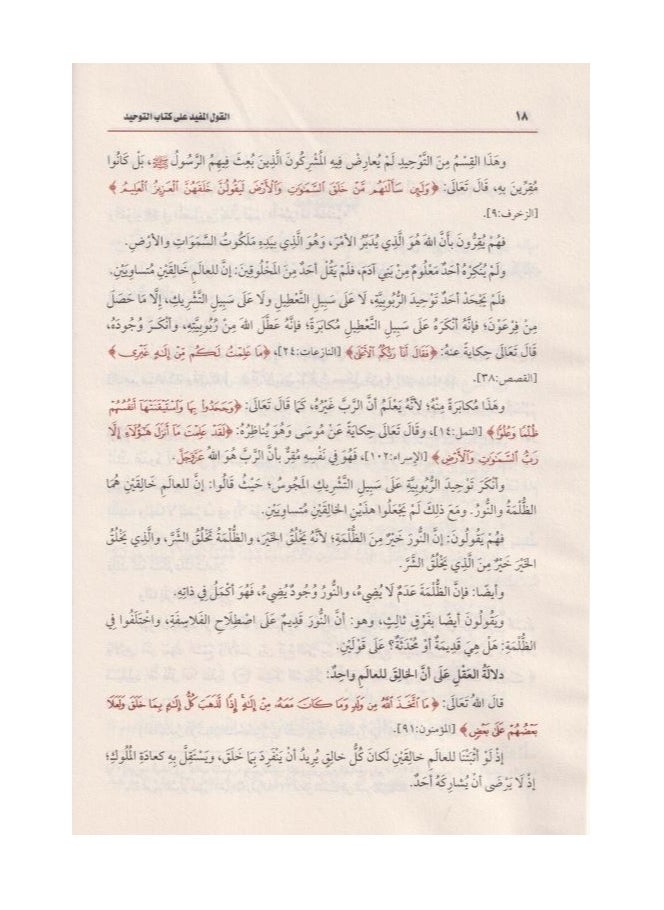 ١٨
القول المفيد على كتاب التوحيد
وَهَذَا القِسْمُ مِنَ التَّوْحِيدِ لَمْ يُعارِضْ فِيهِ المُشْرِكُونَ الَّذِينَ بُعِثَ فِيهِمُ الرَّسُولُ ﷺ، بَلْ كَانُوا
مُقِرِّينَ بِهِ، قَالَ تَعَالَى: ﴿وَلَئِن سَأَلْتَهُم مَّنْ خَلَقَ السَّمَاوَاتِ وَالْأَرْضَ لَيَقُولُنَّ خَلَقَهُنَّ الْعَزِيزُ الْعَلِيمُ﴾
[الزخرف:٩].
فَهُمْ يُقِرُّونَ بِأَنَّ اللهَ هُوَ الَّذِي يُدَبِّرُ الأَمْرَ، وَهُوَ الَّذِي بِيَدِهِ مَلَكُوتُ السَّمَوَاتِ والأَرْضِ.
ولَمْ يُنْكِرْهُ أَحَدٌ مَعْلُومٌ مِنْ بَنِي آدَمَ، فَلَمْ يَقُلْ أَحَدٌ مِنَ المَخْلُوقِينَ: إِنَّ للعالَمِ خَالِقَيْنِ مُتساوِيَيْنِ.
فَلَمْ يَجْحَدْ أَحَدٌ تَوْحِيدَ الرُّبُوبِيَّةِ، لَا عَلَى سَبِيلِ التَّعْطِيلِ وَلَا عَلَى سَبِيلِ التَّشْرِيكِ، إِلَّا مَا حَصَلَ
مِنْ فِرْعَوْنَ؛ فإنَّهُ أَنْكَرَهُ عَلَى سَبِيلِ التَّعْطِيلِ مُكابَرَةً؛ فإنَّهُ عَطَّلَ اللهَ مِنْ رُبُوبِيَّتِهِ، وأَنْكَرَ وُجُودَهُ،
قَالَ تَعَالَى حِكايَةً عنهُ: ﴿فَقَالَ أَنَا رَبُّكُمُ الْأَعْلَى﴾ [النازعات:٢٤]، ﴿مَا عَلِمْتُ لَكُم مِّنْ إِلَهٍ غَيْرِي﴾
[القصص:٣٨].
وهَذَا مُكابَرَةٌ مِنْهُ؛ لأنَّهُ يَعْلَمُ أَنَّ الرَّبَّ غَيْرُهُ، كَمَا قَالَ تَعَالَى: ﴿وَجَحَدُوا بِهَا وَاسْتَيْقَنَتْهَا أَنفُسُهُمْ
ظُلْمًا وَعُلُوًّا﴾ [النمل:١٤]، وقَالَ تَعَالَى حِكايَةً عَنْ مُوسَى وَهُوَ يُناظِرُهُ: ﴿لَقَدْ عَلِمْتَ مَا أَنزَلَ هَؤُلَاءِ إِلَّا
رَبُّ السَّمَاوَاتِ وَالْأَرْضِ﴾ [الإسراء:١٠٢]، فَهُوَ فِي نَفْسِهِ مُقِرٌّ بأَنَّ الرَّبَّ هُوَ اللهُ عَزَّوَجَلَّ.
وأَنْكَرَ تَوْحِيدَ الرُّبُوبِيَّةِ عَلَى سَبِيلِ التَّشْرِيكِ المَجُوسُ؛ حَيْثُ قَالُوا: إِنَّ للعالَمِ خالِقَيْنِ هُمَا
الظُّلْمَةُ والنُّورُ. ومَعَ ذلكَ لَمْ يَجْعَلُوا هذَيْنِ الخالِقَيْنِ مُتساوِيَيْنِ.
فهُمْ يَقُولُونَ: إِنَّ النُّورَ خَيْرٌ مِنَ الظُّلْمَةِ؛ لأنَّهُ يَخْلُقُ الخَيْرَ، والظُّلْمَةُ تَخْلُقُ الشَّرَّ، والَّذِي يَخْلُقُ
الخَيْرَ خَيْرٌ مِنَ الَّذِي يَخْلُقُ الشَّرَّ.
وأيضًا: فإنَّ الظُّلْمَةَ عَدَمٌ لَا يُضِيءُ، والنُّورَ وُجُودٌ يُضِيءُ، فَهُوَ أَكْمَلُ فِي ذاتِهِ.
ويَقُولُونَ أيضًا بفَرْقٍ ثالِثٍ، وهو: أنَّ النُّورَ قَدِيمٌ عَلَى اصْطِلَاحِ الفَلاسِفَةِ، واخْتَلَفُوا فِي
الظُّلْمَةِ: هَلْ هِيَ قَدِيمَةٌ أَوْ مُحْدَثَةٌ؟ عَلَى قَوْلَيْنِ.
دلالَةُ العَقْلِ عَلَى أنَّ الخالِقَ للعالَمِ واحِدٌ:
قَالَ اللهُ تَعَالَى: ﴿مَا اتَّخَذَ اللَّهُ مِن وَلَدٍ وَمَا كَانَ مَعَهُ مِنْ إِلَهٍ إِذًا لَّذَهَبَ كُلُّ إِلَهٍ بِمَا خَلَقَ وَلَعَلَا
بَعْضُهُمْ عَلَى بَعْضٍ﴾ [المؤمنون:٩١].
إِذْ لَوْ أَثْبَتْنَا للعالَمِ خالِقَيْنِ لَكانَ كُلُّ خالِقٍ يُرِيدُ أَنْ يَنْفَرِدَ بِمَا خَلَقَ، ويَسْتَقِلَّ بِهِ كعادَةِ المُلُوكِ؛
إِذْ لَا يَرْضَى أَنْ يُشارِكَهُ أَحَدٌ.